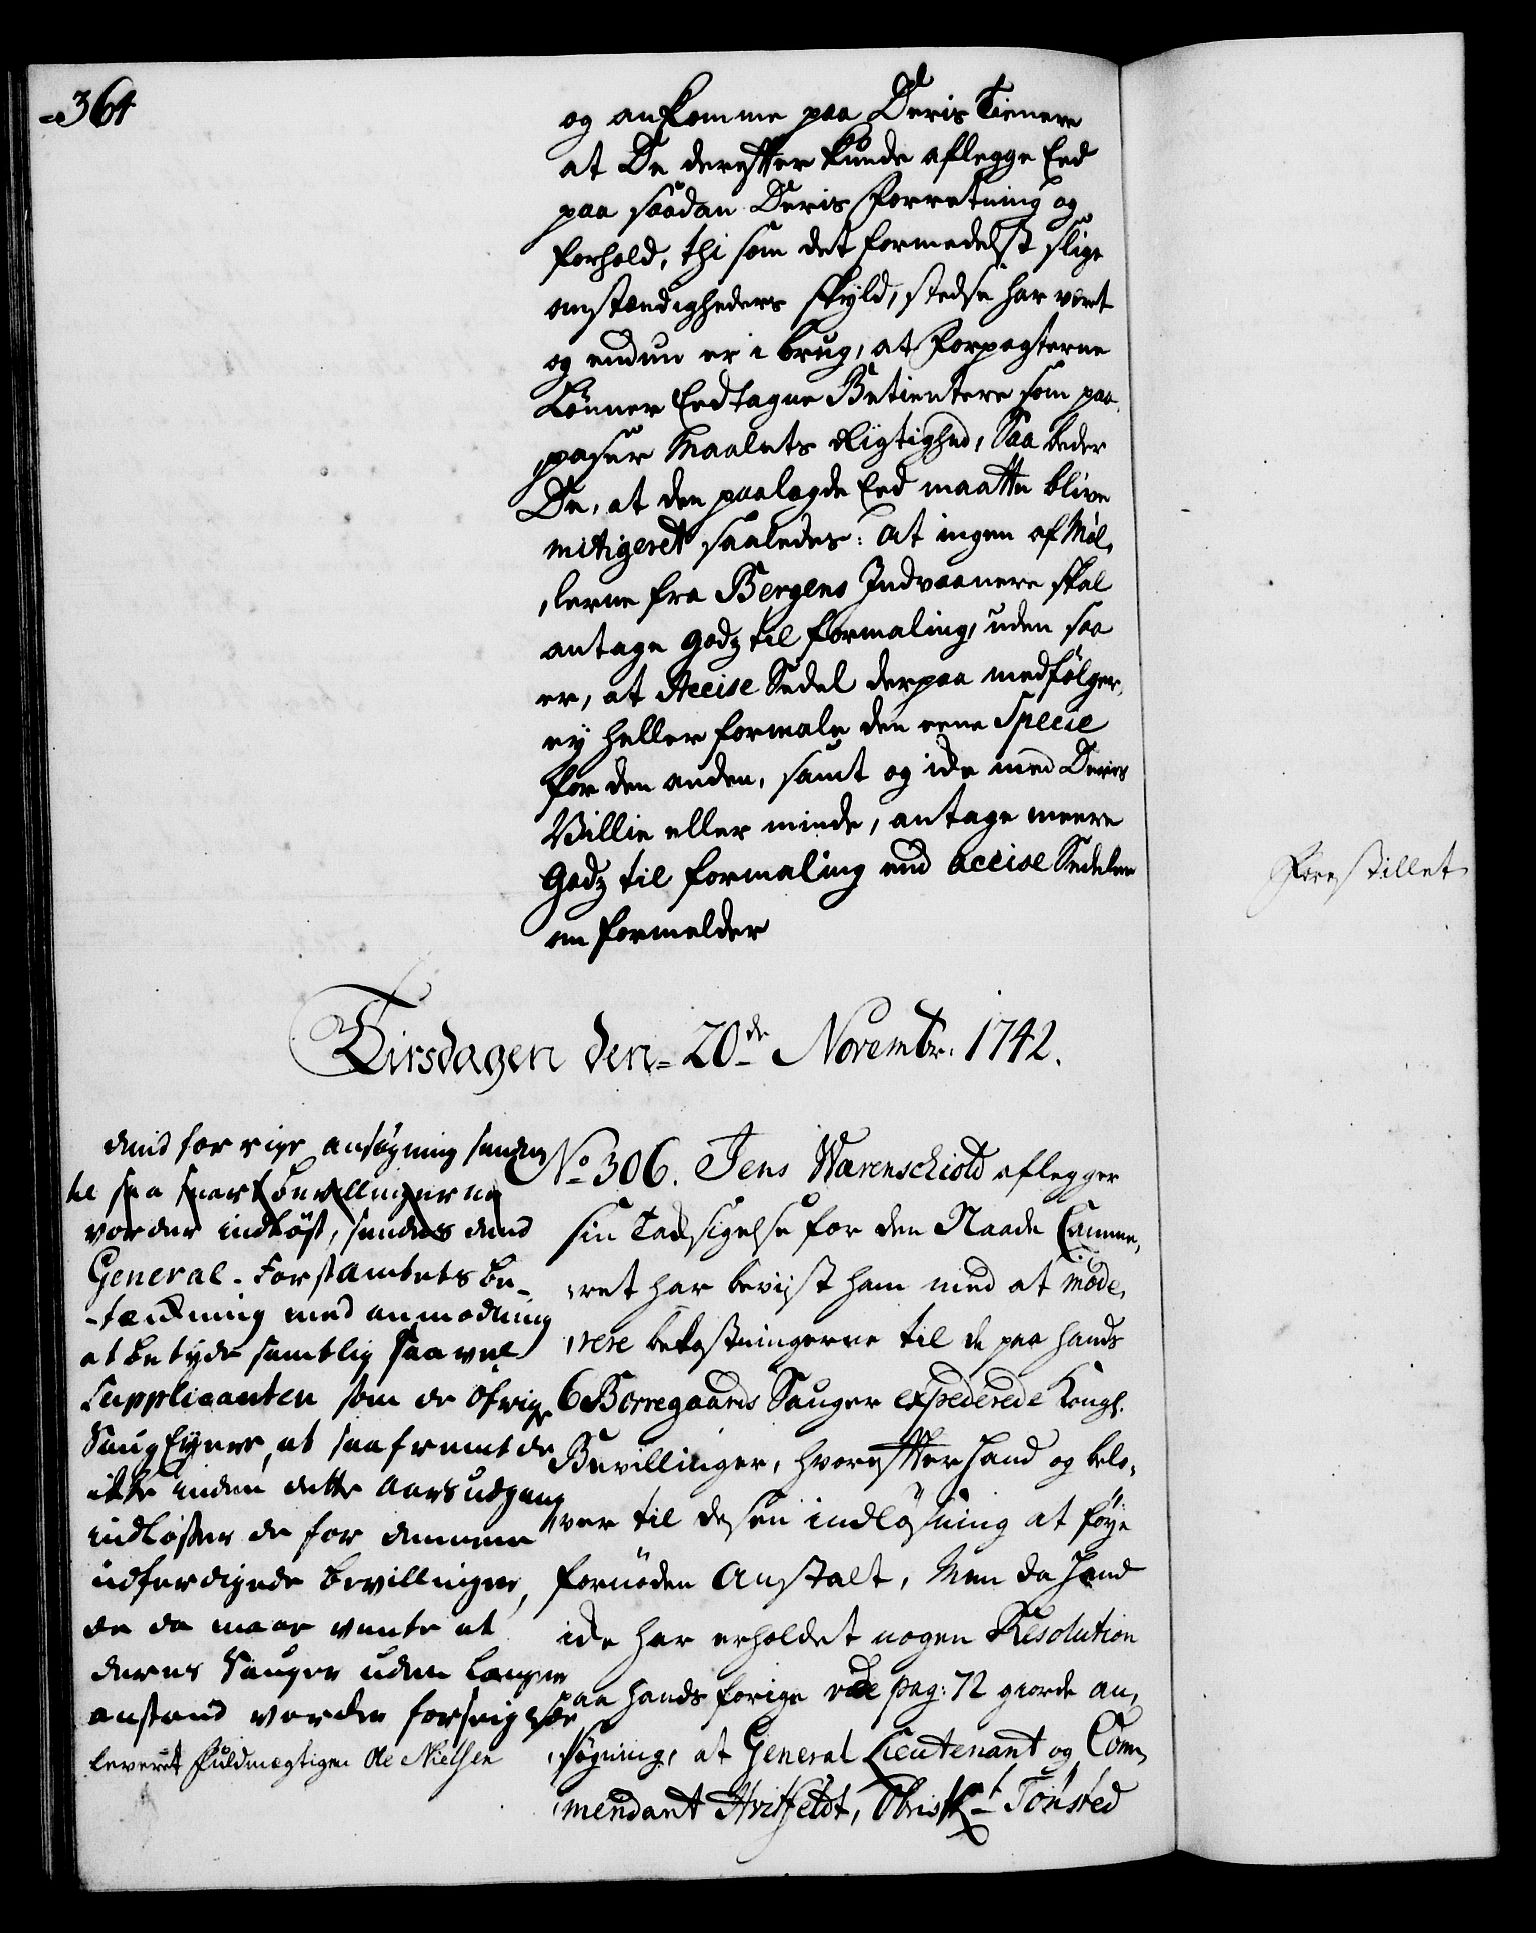 364
og ankomme paa Deris Tienere
at De derefter kunde aflegge Eed
paa saadan Deris Forretning og
forhold, thi som det formedelst slige
omstændigheders skyld, stedse har vært
og endnu er i brug, at Forpagterne
Lønner Eedtagne Betientere som paa
passer Maalets Rigtighed, Saa beder
De, at den paalagde Eed maatte blive
mitigeret saaledes: At ingen af Møl,
,lerne fra Bergens Indvaanere skal
antage godz til formaling, uden saa
er, at Accise Sedel derpaa medfølger,
ey heller formale den eene Specie
for den anden, samt og icke med Deres
Villie eller minde, antage meere
Godz til formaling end accise Sedelen
om formelder
Tirsdagen den 20de Novembr: 1742.
No 306. Jens Warenschiold aflegger
sin Tacksigelse for den Naade Camme,
,ret har beviist ham med at mode,
,rere bekostningerne til de paa hands
6 Borregaards Sauger expederede Kongl.
Bevillinger, hvorefter hand og belo,
,ver til desen indløsning at føye
fornöden Anstalt, Men da hand
icke har erholdet nogen Resolution
paa hands forige vide pag: 72 giorde an,
,søgning, at General Lieutenant og Com,
,mendant Hvitfeldt, Obristl:t Tönsted
dend forrige ansøgning sendes
til saa snart bevillingerne
vorder indløst, sendes dend
General-Forstambtets be-
-tænkning med anmodning
at betyde samtlig saavel
Supplicanten som de øfrige
Saug Eyere, at saafremt de
icke inden dette Aars udgang
indløser de for dennem
udferdigede bevillinger,
de da maae vente at
deres Sauger uden længere
anstand vorder forseiglede
leveret Fuldmægtigen Ole Nielsen
Forestillet